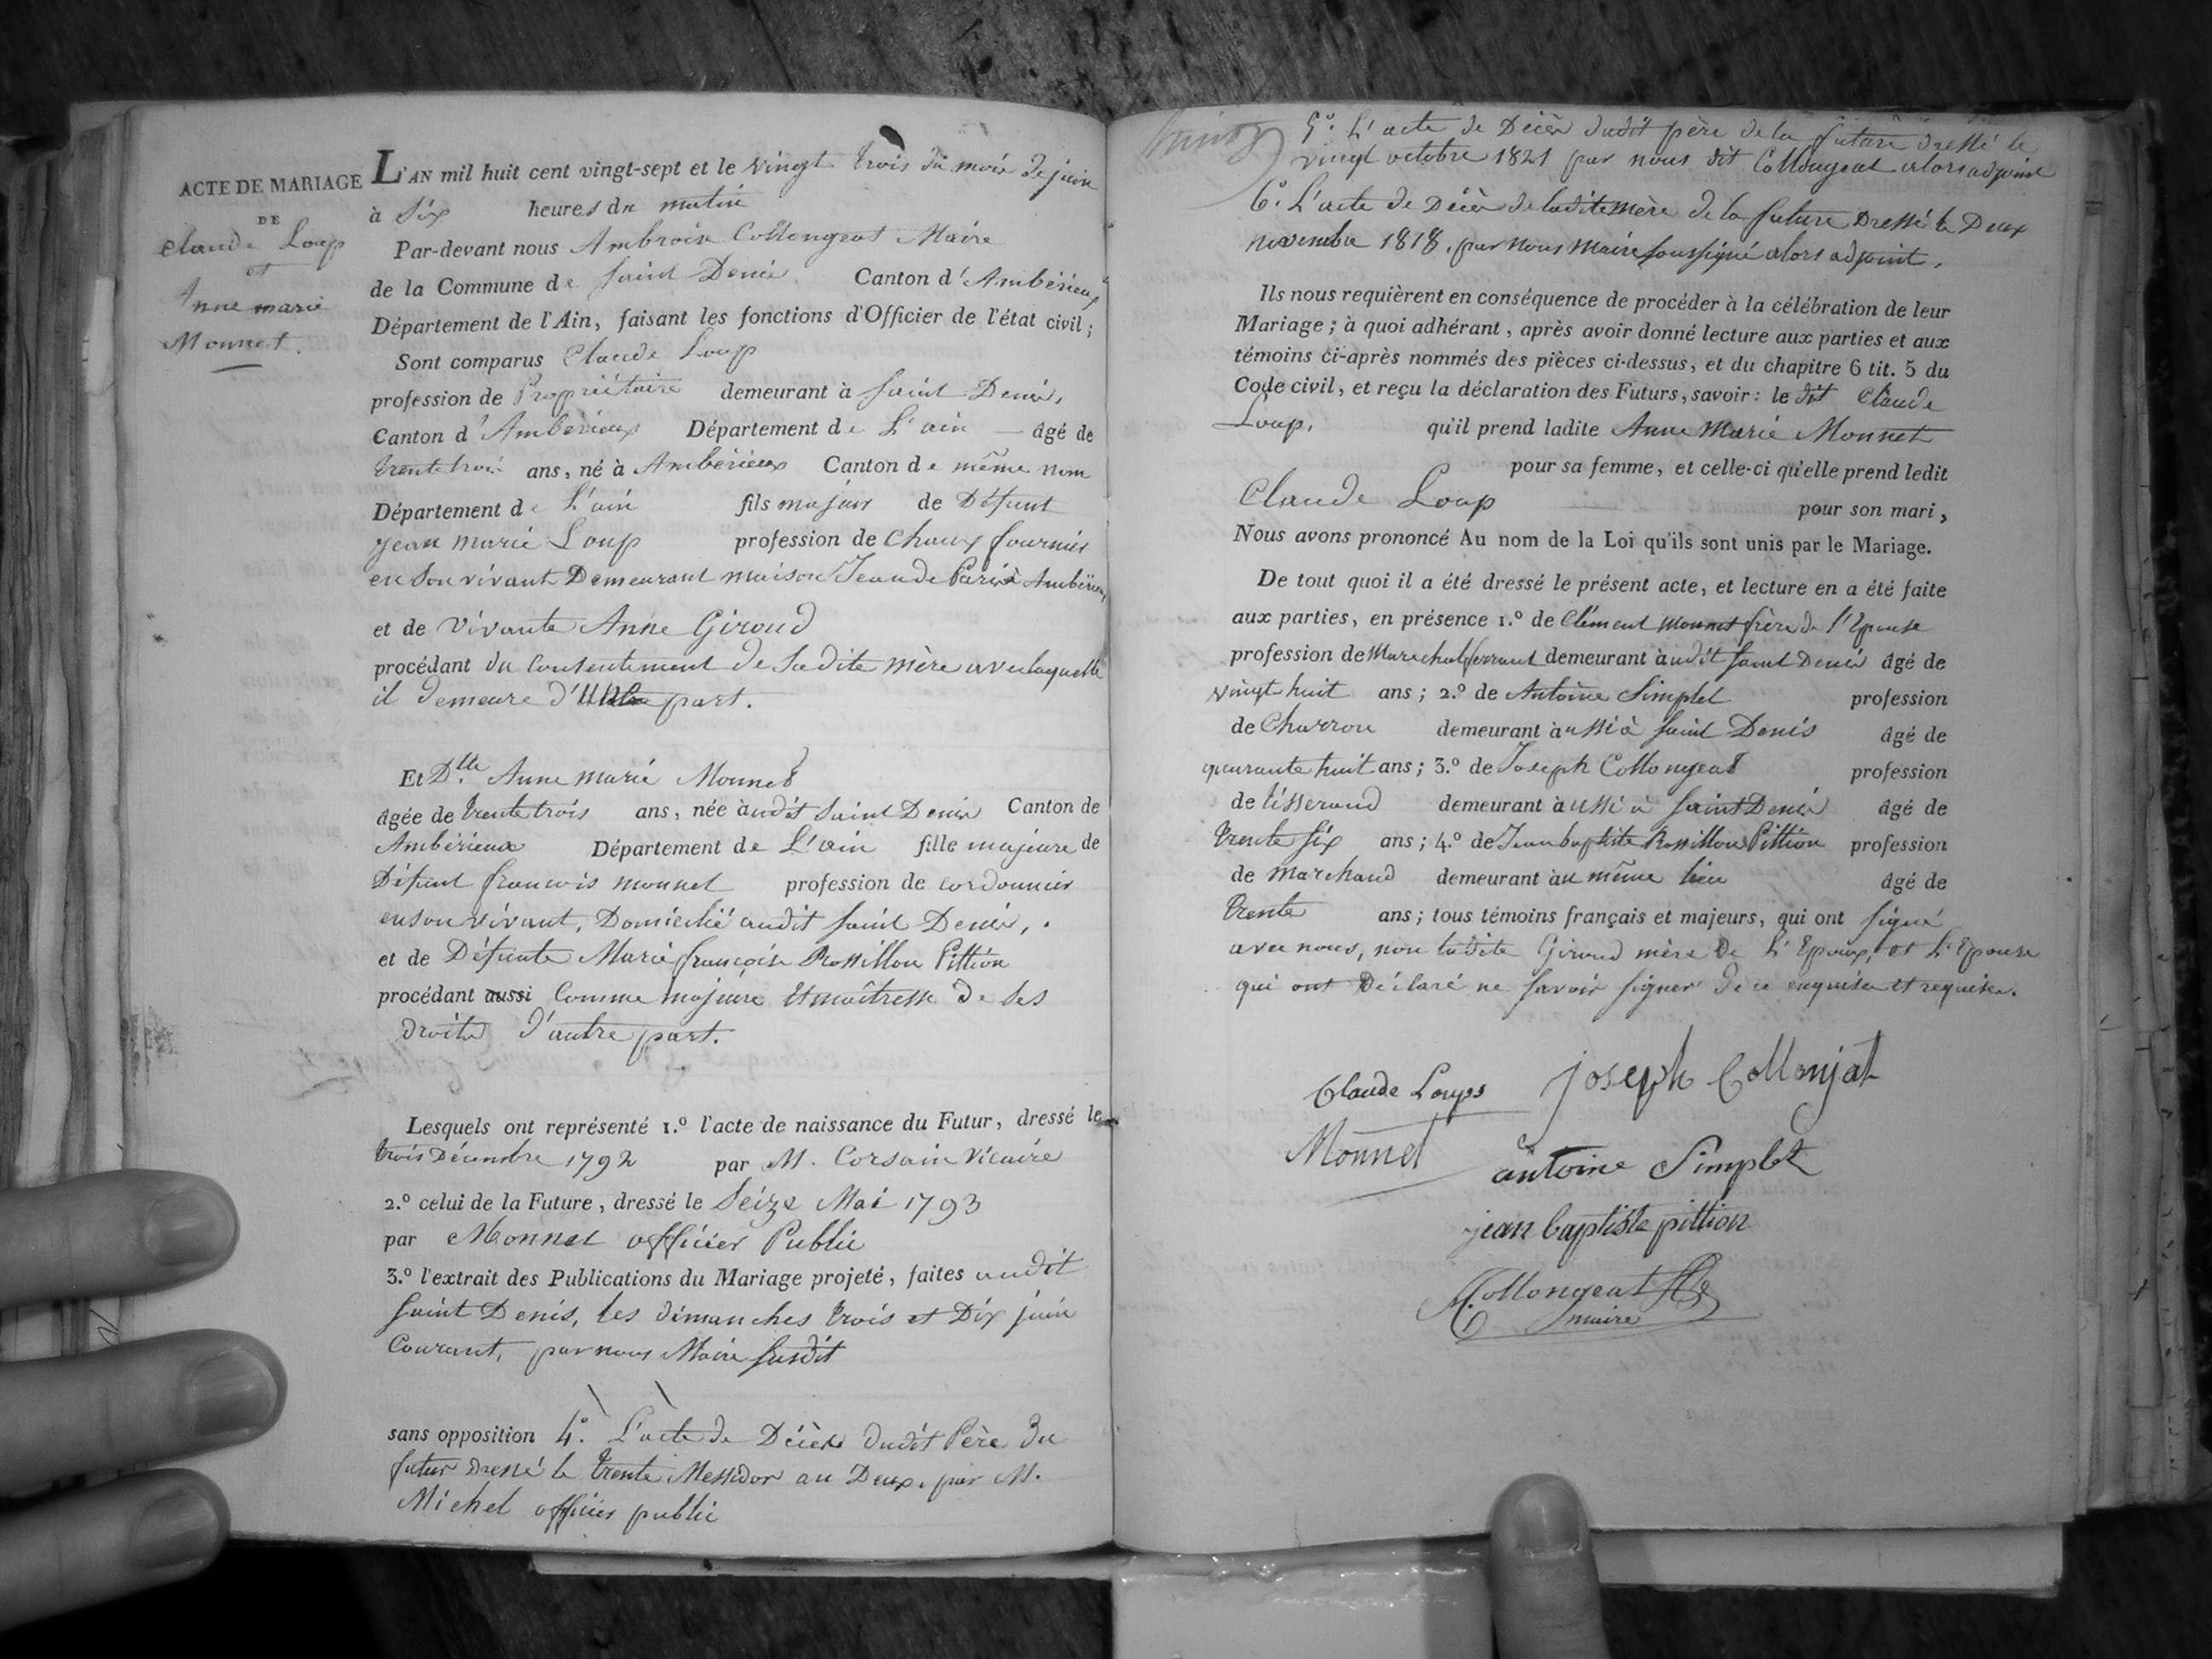 ACTE DE MARIAGE
DE
Claude Loup
et
Anne marie
Monnet.
L'AN mil huit cent vingt-sept et le vingt trois du mois de juin
à Six heures du matin
Par-devant nous Ambroise Collongeat Maire
de la Commune de Saint Denis Canton d'Ambérieux
Département de l'Ain, faisant les fonctions d'Officier de l'état civil;
Sont comparus Claude Loup
profession de Propriétaire demeurant à Saint Denis,
Canton d'Ambérieux Département de L'ain — âgé de
trente trois ans, né à Ambérieux Canton de même nom
Département de L'ain fils majeur de Défunt
Jean marie Loup profession de Chaux fournier
en son vivant Demeurant maison Jean de Paris à Ambérieux,
et de vivante Anne Giroud
procédant du Consentement de Sadite mère avec laquelle
il demeure d'une part.
Et Dlle Anne marie Monnet
âgée de trente trois ans, née audit Saint Denis Canton de
Ambérieux Département de L'ain fille majeure de
Défunt francois monnet profession de cordonnier
en son vivant, Domicilié audit Saint Denis,
et de Défunte Marie françoise Rossillon Pittion
procédant aussi Comme majeure Et maîtresse de Ses
droits d'autre part.
Lesquels ont représenté 1.º l'acte de naissance du Futur, dressé le
trois Décembre 1792 par M. Corsain Vicaire
2.º celui de la Future, dressé le Seize Mai 1793
par Monnet officier Public
3.º l'extrait des Publications du Mariage projeté, faites audit
Saint Denis, les dimanches trois et Dix juin
Courant, par nous Maire susdit
sans opposition 4º. L'acte de Décès dudit Père du
futur Dressé le trente Messidor an Deux, par M.
Michel officier public
5º. L'acte de Décès dudit père de la future dressé le
vingt octobre 1821 par nous dit Collongeat alors adjoint
6º. L'acte de Décès de ladite mère de la future Dressé le Deux
novembre 1818. par nous Maire soussigné alors adjoint.
Ils nous requièrent en conséquence de procéder à la célébration de leur
Mariage; à quoi adhérant, après avoir donné lecture aux parties et aux
témoins ci-après nommés des pièces ci-dessus, et du chapitre 6 tit. 5 du
Code civil, et reçu la déclaration des Futurs, savoir: le dit Claude
Loup, qu'il prend ladite Anne Marie Monnet
pour sa femme, et celle-ci qu'elle prend ledit
Claude Loup pour son mari,
Nous avons prononcé Au nom de la Loi qu'ils sont unis par le Mariage.
De tout quoi il a été dressé le présent acte, et lecture en a été faite
aux parties, en présence 1.º de Clément Monnet frère de l'Epouse
profession de Marechal ferrant demeurant audit Saint Denis âgé de
vingt huit ans; 2.º de Antoine Simplet profession
de Charron demeurant aussi à Saint Denis âgé de
quarante huit ans; 3.º de Joseph Collongeat profession
de tisserand demeurant aussi à Saint Denis âgé de
trente six ans; 4.º de Jean baptiste Rossillon Pittion profession
de marchand demeurant au même lieu âgé de
trente ans; tous témoins français et majeurs, qui ont signé
avec nous, non ladite Giroud mère de L'Epoux, et L'Epouse
qui ont Déclaré ne savoir signer de ce enquises et requises.
Claude Loup joseph Collonjat
Monnet antoine Simplet
jean baptiste pittion
Collongeat
maire